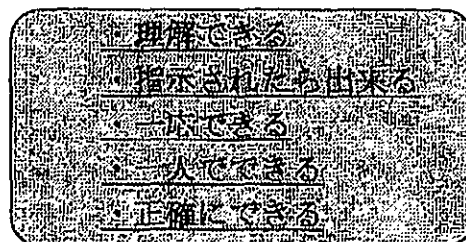 ・理解できる
・指示されたら出来る
・一応できる
・一人でできる
・正確にできる